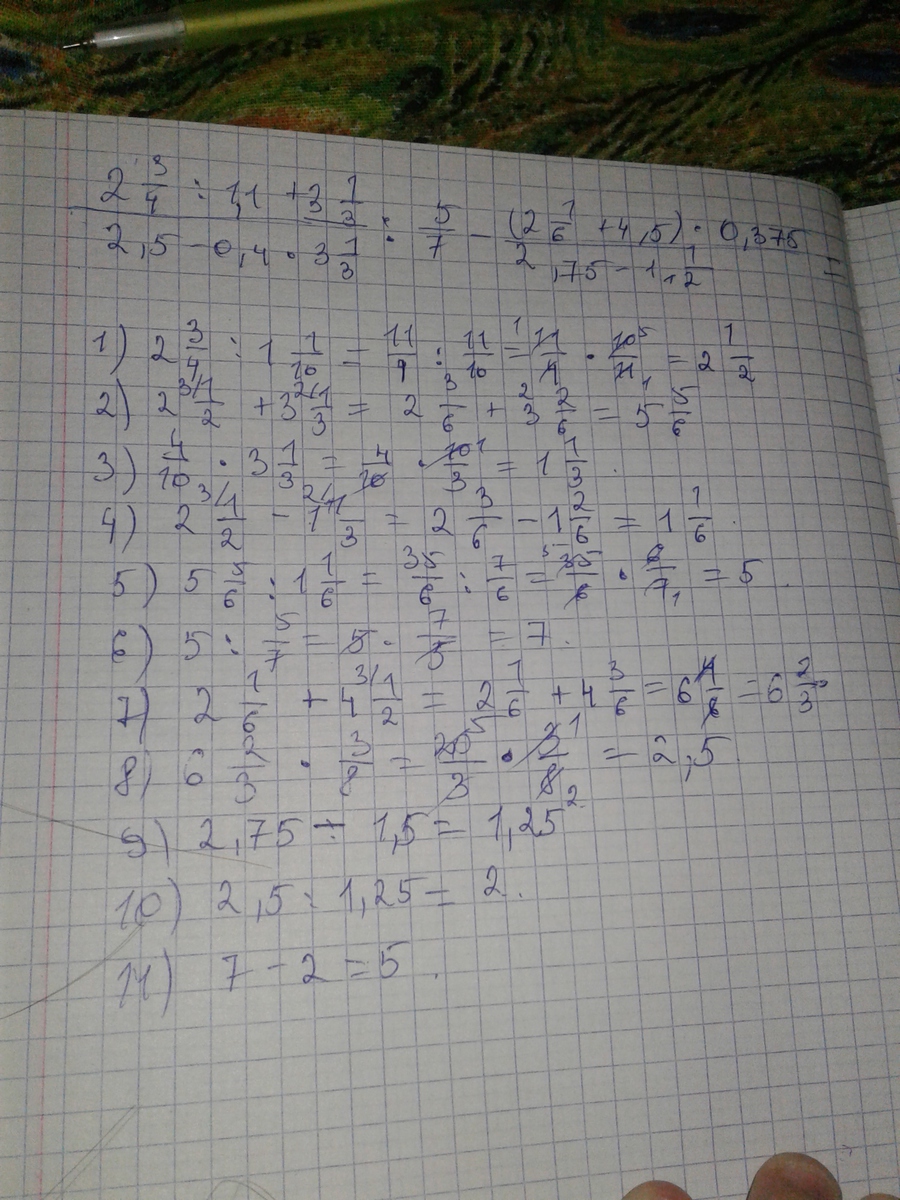 2 3/4 : 1,1 + 3 1/3
2,5 - 0,4 · 3 1/3 : 5/7 - (2 1/6 + 4,5) · 0,375
2,75 - 1 1/2 =
1) 2 3/4 : 1 1/10 = 11/4 : 11/10 = 11/4 · 10/11 = 2 1/2
2) 2 1/2 + 3 1/3 = 2 3/6 + 3 2/6 = 5 5/6
3) 4/10 · 3 1/3 = 4/10 · 10/3 = 1 1/3.
4) 2 1/2 - 1 1/3 = 2 3/6 - 1 2/6 = 1 1/6.
5) 5 5/6 : 1 1/6 = 35/6 : 7/6 = 35/6 · 6/7 = 5.
6) 5 : 5/7 = 5 · 7/5 = 7.
7) 2 1/6 + 4 1/2 = 2 1/6 + 4 3/6 = 6 4/6 = 6 2/3
8) 6 2/3 · 3/8 = 20/3 · 3/8 = 2,5
9) 2,75 - 1,5 = 1,25
10) 2,5 : 1,25 = 2.
11) 7 - 2 = 5.